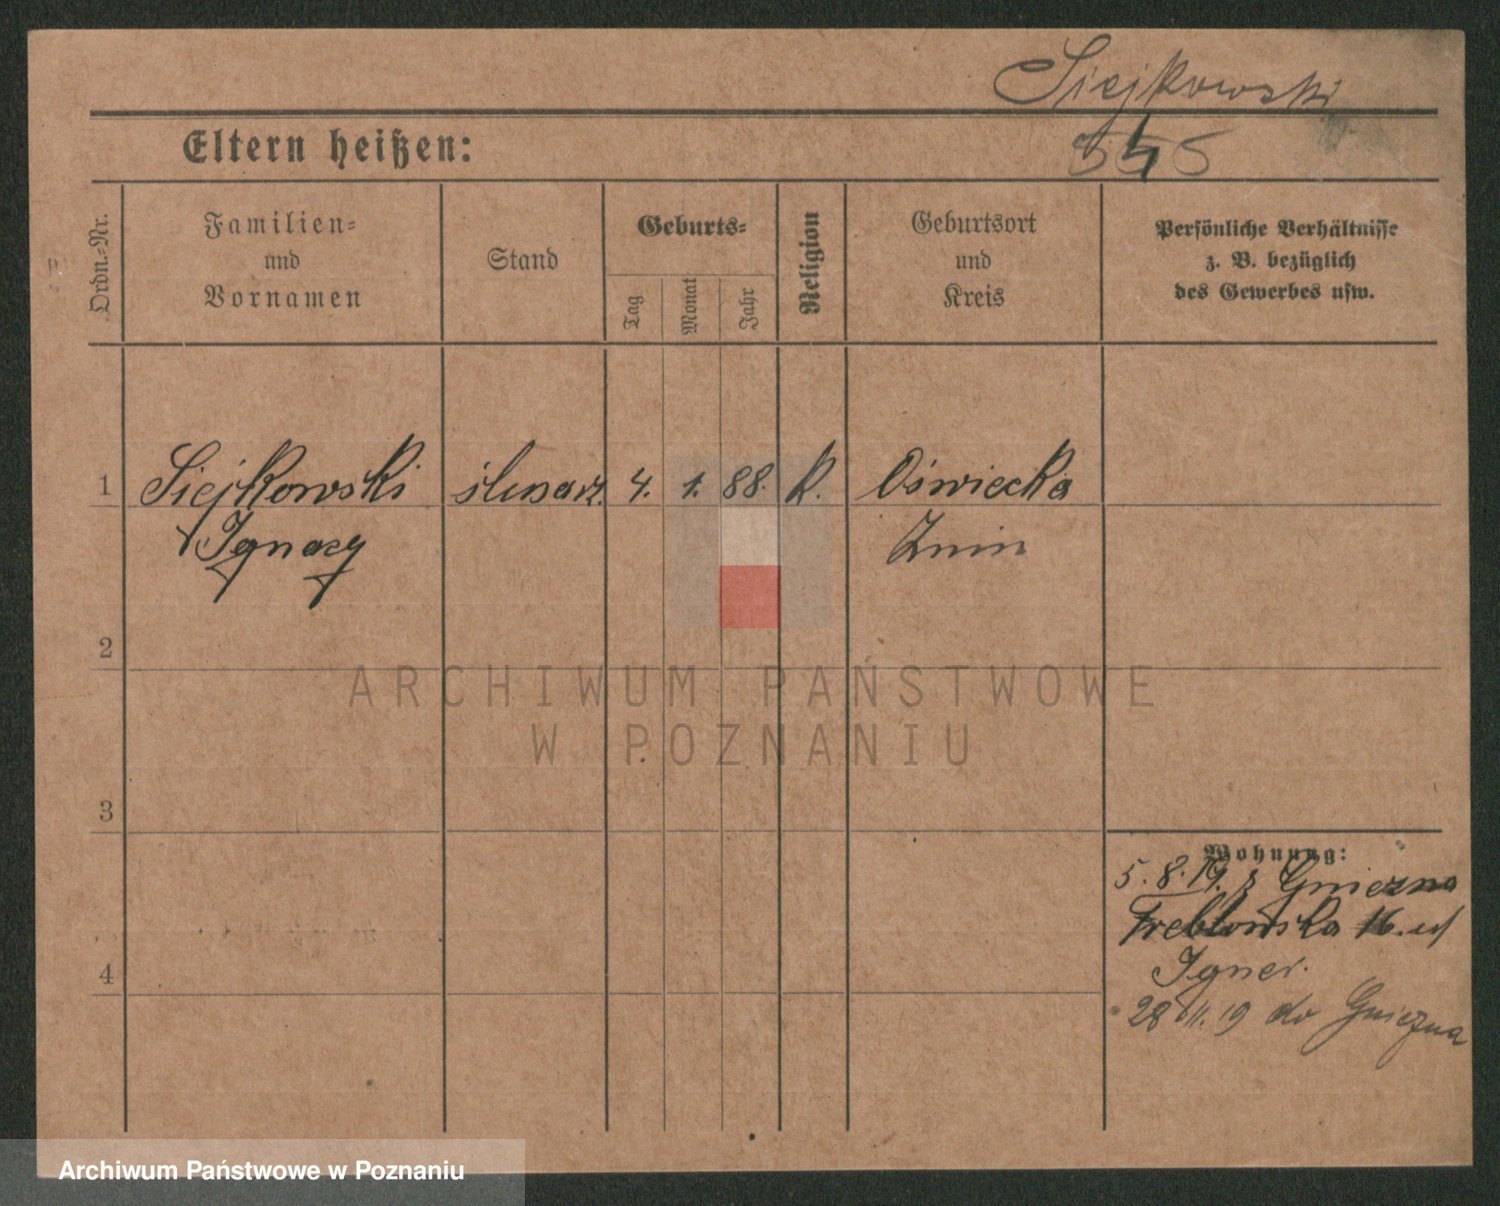 Siejkowski
Eltern heißen:
545
Ordn.-Nr.
Familien=
und
Vornamen
Stand
Geburts=
Tag
Monat
Jahr
Religion
Geburtsort
und
Kreis
Persönliche Verhältnisse
z. B. bezüglich
des Gewerbes usw.
1 Siejkowski ślusarz. 4. 1. 88. K. Oświecka
Ignacy Żnin
2
3
4
Wohnung:
5.8.19. z Gniezna
Treblowska 16.
Igner.
28 11. 19 do Gniezna
ARCHIWUM PAŃSTWOWE
W POZNANIU
Archiwum Państwowe w Poznaniu